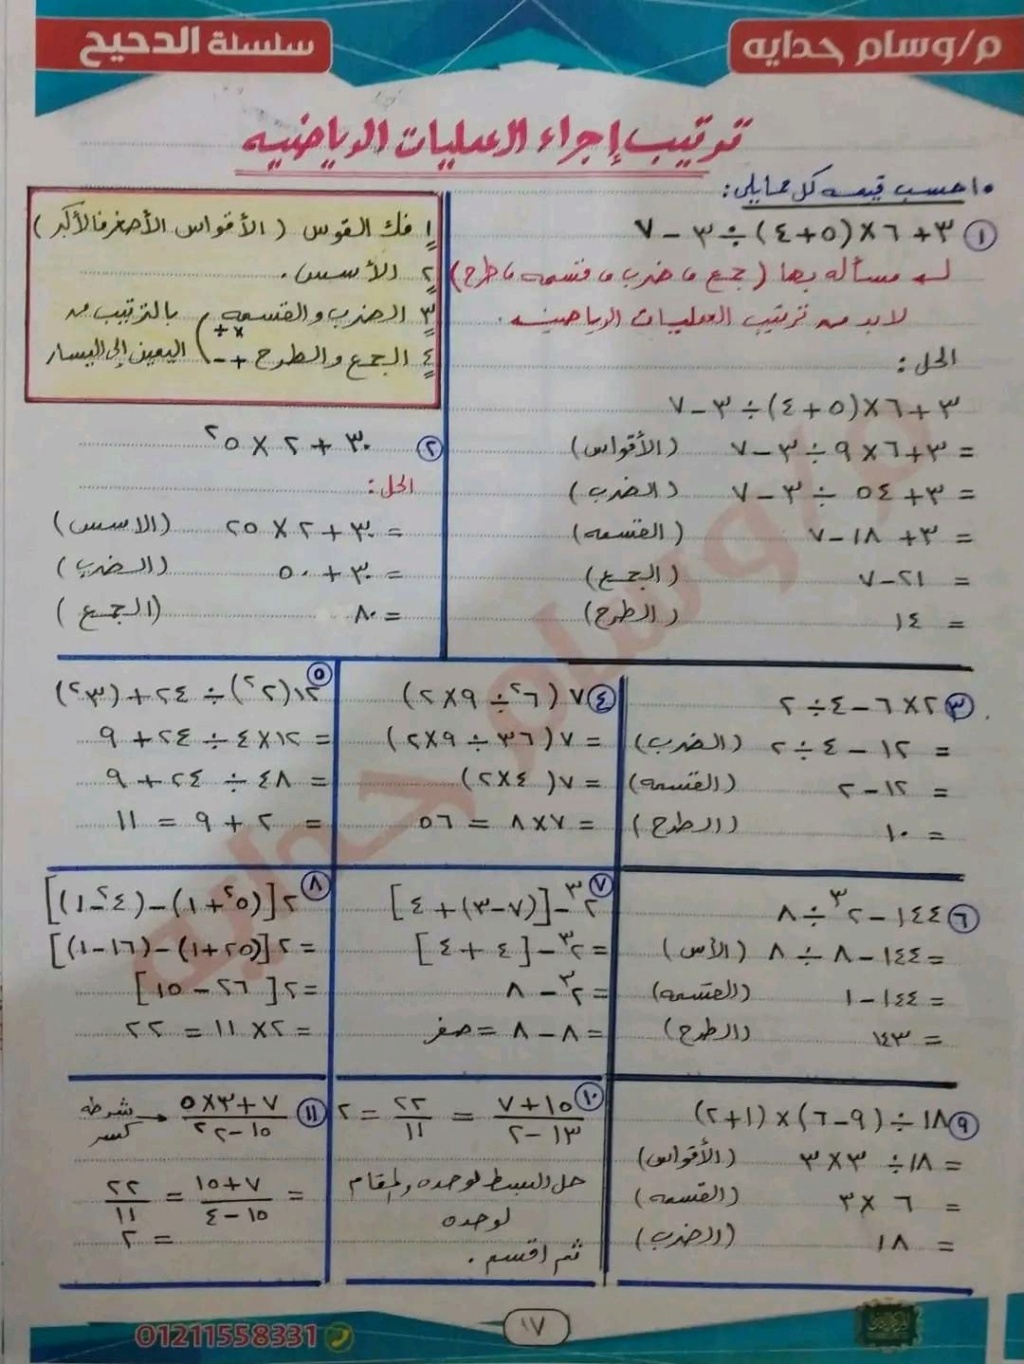 م/وسام حدايه
سلسلة الدحيح
ترتيب إجراء العمليات الرياضيه
• احسب قيمه كل مما يلى:
١ ٣ + ٦ × (٥ + ٤) ÷ ٣ - ٧
مسأله بها (جمع ، ضرب ، قسمه ، طرح)
لابد من ترتيب العمليات الرياضيه.
الحل:
٣ + ٦ × (٥ + ٤) ÷ ٣ - ٧
= ٣ + ٦ × ٩ ÷ ٣ - ٧ (الأقواس)
= ٣ + ٥٤ ÷ ٣ - ٧ (الضرب)
= ٣ + ١٨ - ٧ (القسمه)
= ٢١ - ٧ (الجمع)
= ١٤ (الطرح)
١ فك القوس (الأقواس الأصغر فالأكبر)
٢ الأسس.
٣ الضرب والقسمه × ÷ بالترتيب من
٤ الجمع والطرح + - اليمين إلى اليسار
٢ ٣٠ + ٢ × ٥²
الحل:
= ٣٠ + ٢ × ٢٥ (الاسس)
= ٣٠ + ٥٠ (الضرب)
= ٨٠ (الجمع)
٣ ٢ × ٦ - ٤ ÷ ٢
= ١٢ - ٤ ÷ ٢ (الضرب)
= ١٢ - ٢ (القسمه)
= ١٠ (الطرح)
٤ ٧ (٦² ÷ ٩ × ٢)
= ٧ (٣٦ ÷ ٩ × ٢)
= ٧ (٤ × ٢)
= ٧ × ٨ = ٥٦
٥ ١٢ (٢²) ÷ ٢٤ + (٣²)
= ١٢ × ٤ ÷ ٢٤ + ٩
= ٤٨ ÷ ٢٤ + ٩
= ٢ + ٩ = ١١
٦ ١٤٤ - ٢³ ÷ ٨
= ١٤٤ - ٨ ÷ ٨ (الأس)
= ١٤٤ - ١ (القسمه)
= ١٤٣ (الطرح)
٧ ٢³ - [(٧ - ٣) + ٤]
= ٢³ - [٤ + ٤]
= ٢³ - ٨
= ٨ - ٨ = صفر
٨ ٢ [(٥² + ١) - (٤² - ١)]
= ٢ [(٢٥ + ١) - (١٦ - ١)]
= ٢ [٢٦ - ١٥]
= ٢ × ١١ = ٢٢
٩ ١٨ ÷ (٩ - ٦) × (١ + ٢)
= ١٨ ÷ ٣ × ٣ (الأقواس)
= ٦ × ٣ (القسمه)
= ١٨ (الضرب)
١٠ (١٥ + ٧)/(١٣ - ٢) = ٢٢/١١ = ٢
حل البسط لوحده والمقام
لوحده
ثم اقسم.
١١ (٧ + ٣ × ٥)/(١٥ - ٢²) شرطه
كسر
= (٧ + ١٥)/(١٥ - ٤) = ٢٢/١١
= ٢
م/وسام حدايه
١٧
01211558331